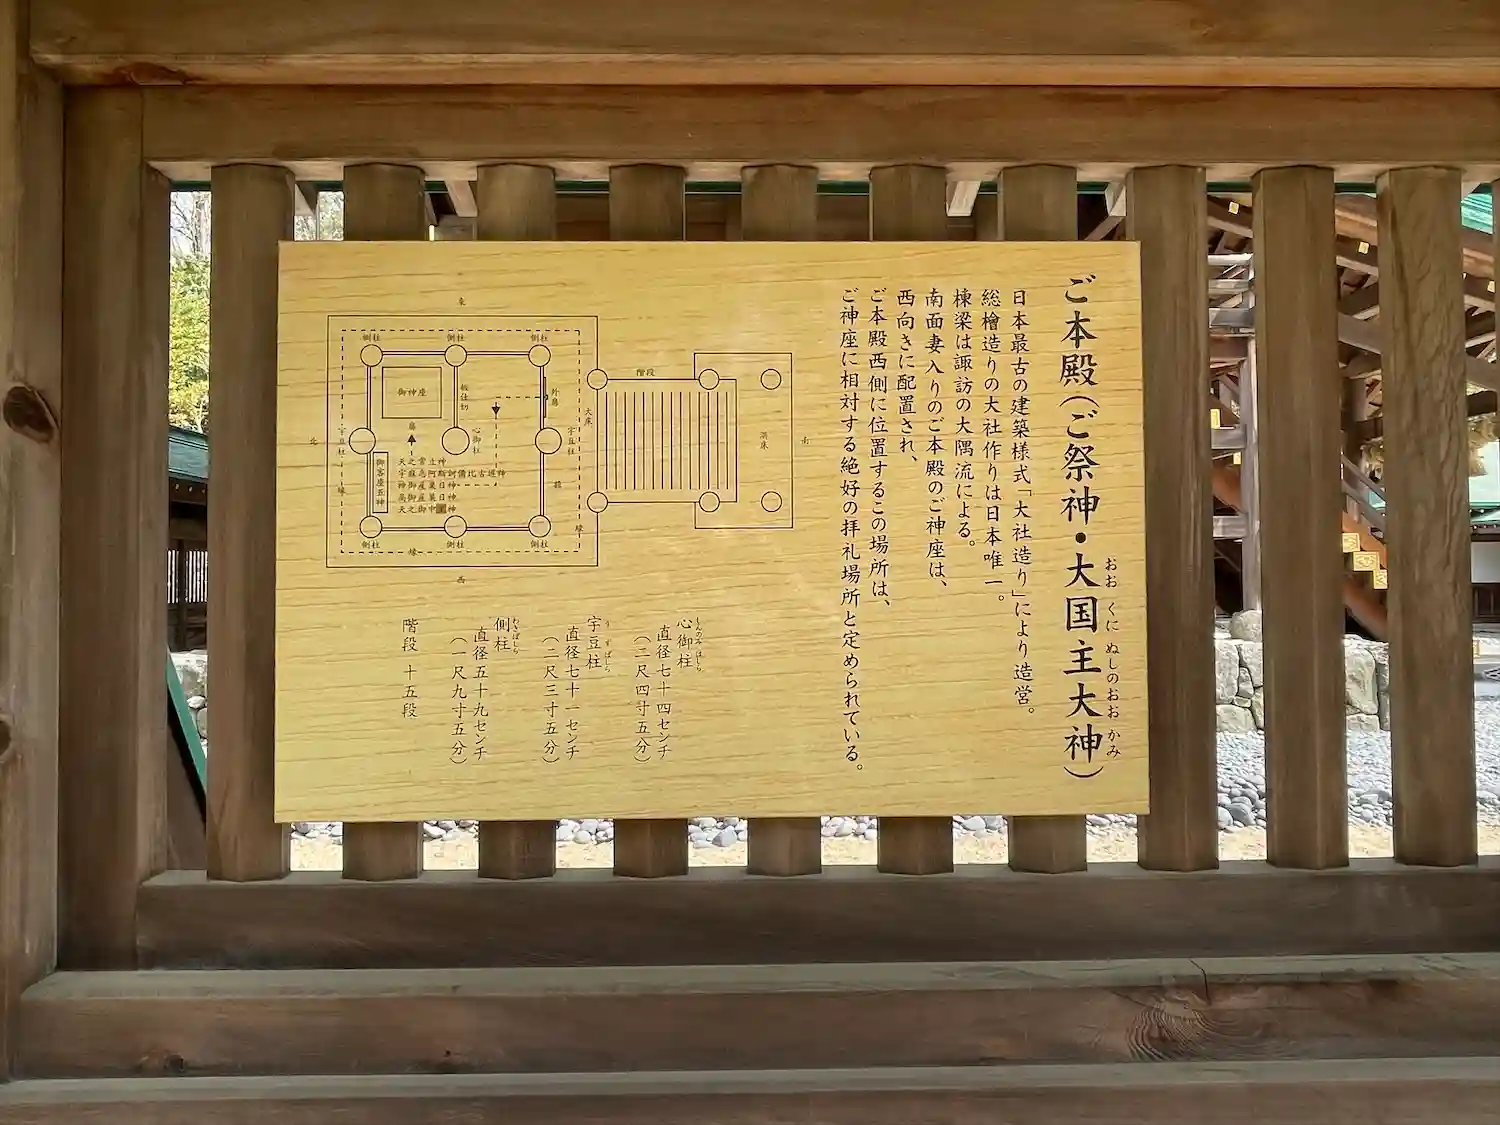 ご本殿(ご祭神・大国主大神)
おお くに ぬしのおお かみ
日本最古の建築様式「大社造り」により造営。
総檜造りの大社作りは日本唯一。
棟梁は諏訪の大隅流による。
南面妻入りのご本殿のご神座は、
西向きに配置され、
ご本殿西側に位置するこの場所は、
ご神座に相対する絶好の拝礼場所と定められている。
東
側柱
側柱
側柱
御神座
板仕切
階段
大床
南
北
宇豆柱
心御柱
宇豆柱
御客座五神
神御産巣日神
高御産巣日神
縁
側柱
側柱
側柱
縁
縁
西
心御柱
しんのみはしら
直径七十四センチ
(二尺四寸五分)
宇豆柱
うずばしら
直径七十一センチ
(二尺三寸五分)
側柱
わきばしら
直径五十九センチ
(一尺九寸五分)
階段 十五段